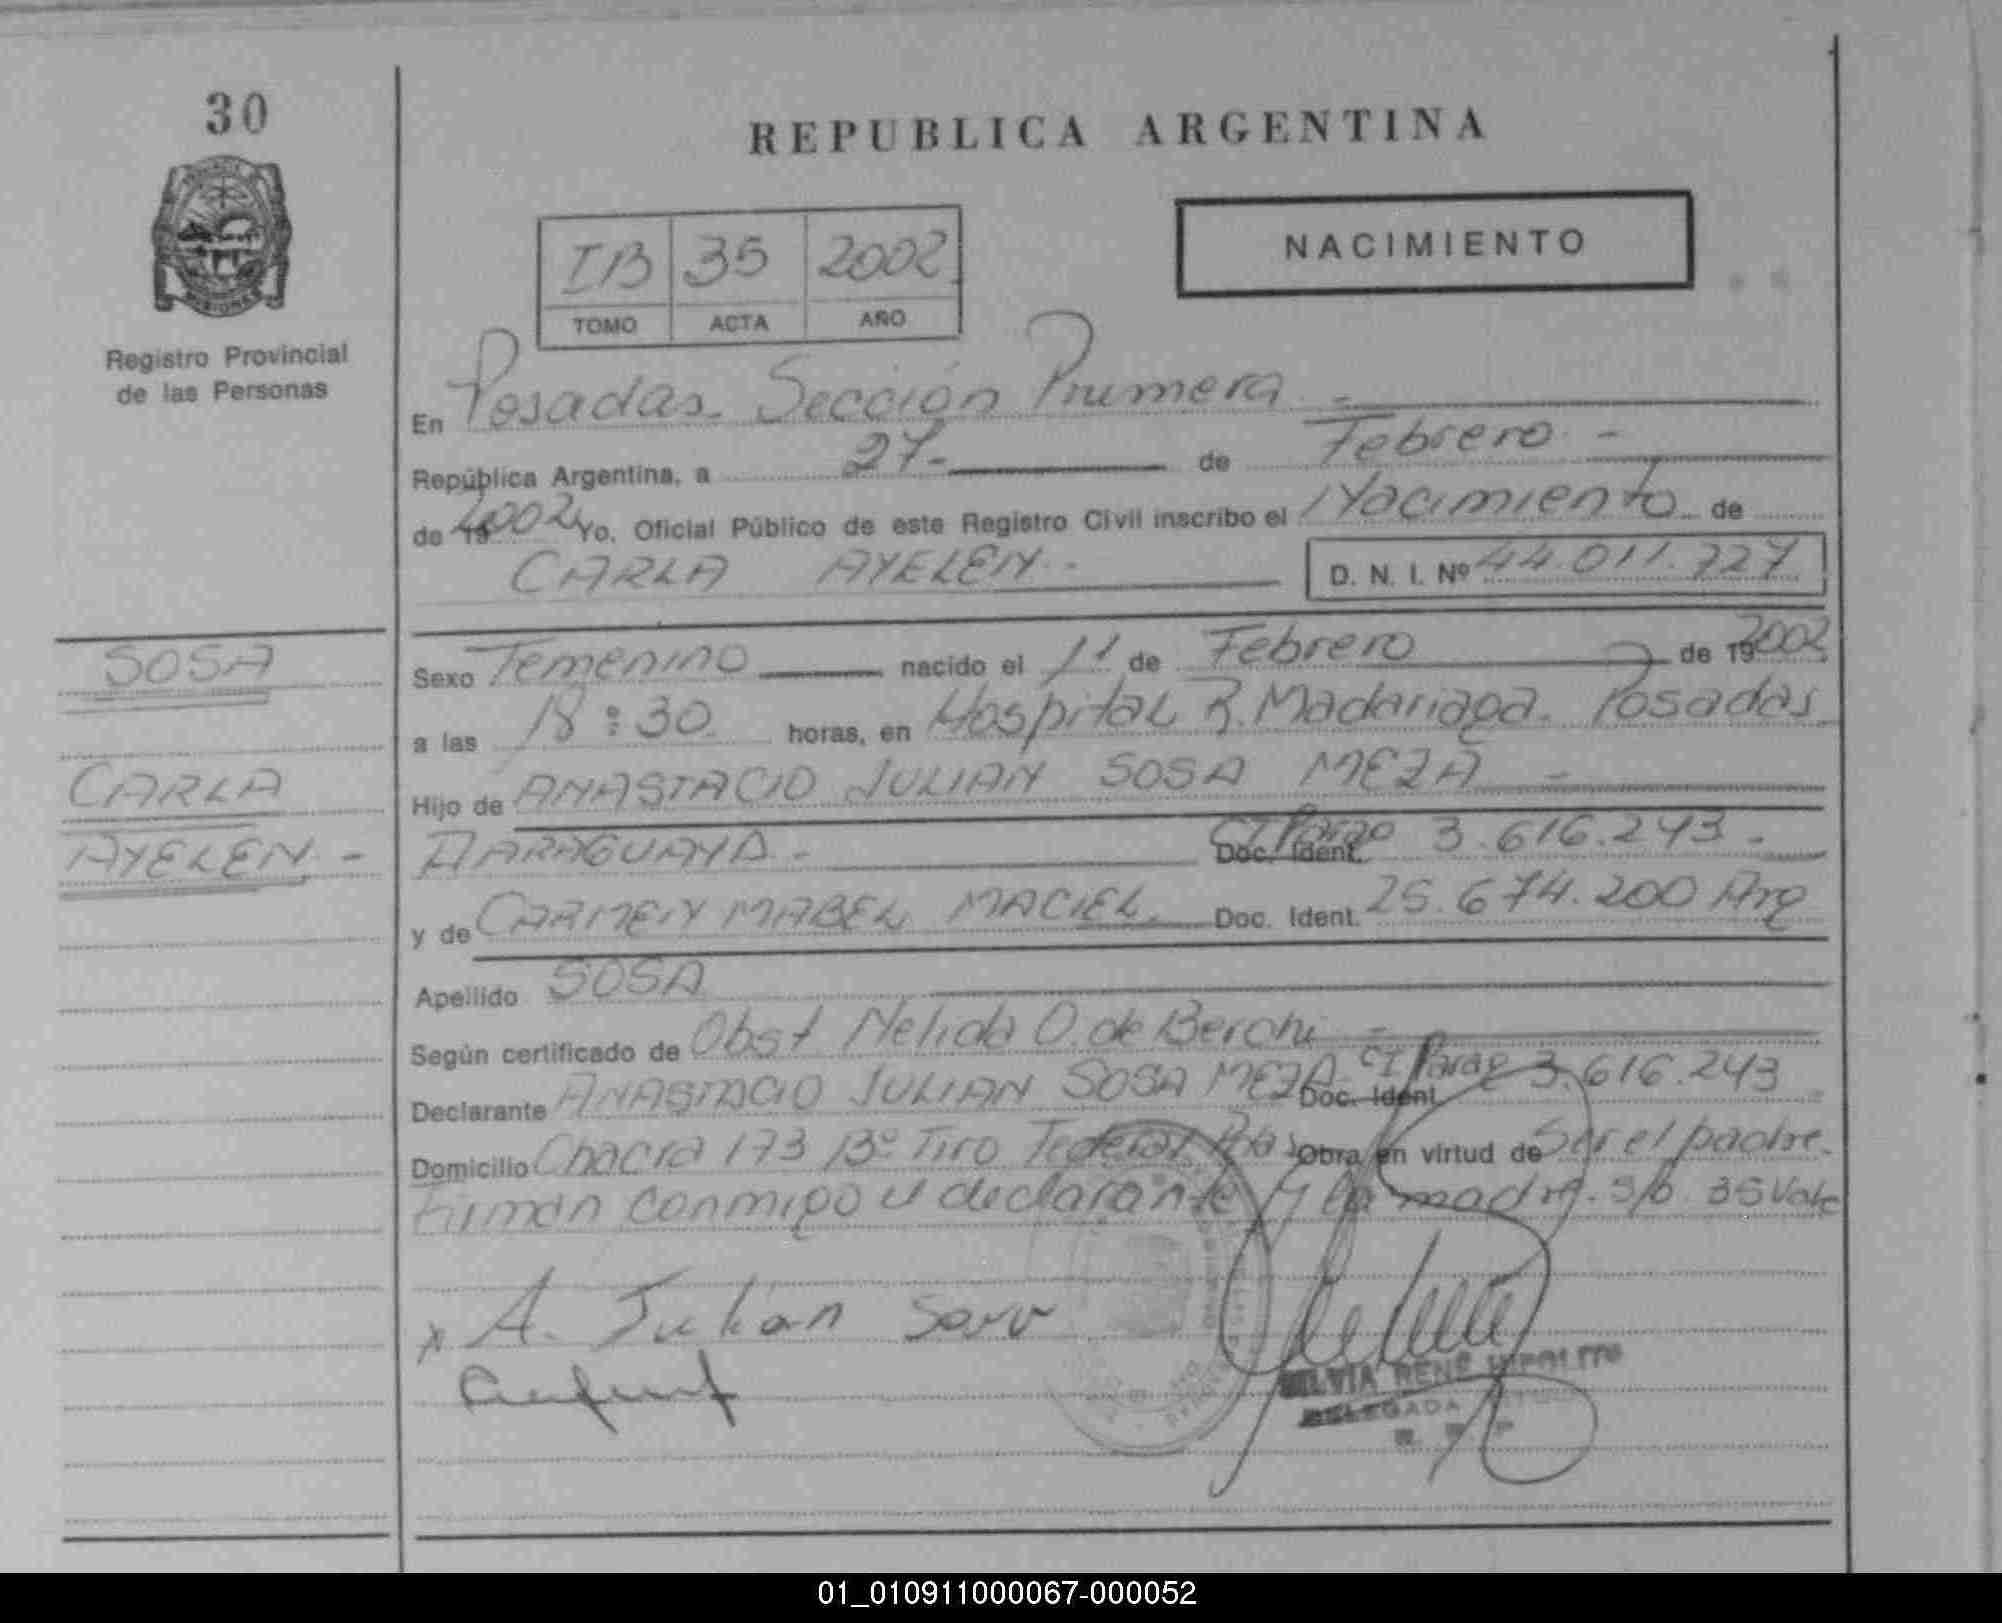 30
REPUBLICA ARGENTINA
NACIMIENTO
IB 35 2002
TOMO ACTA AÑO
Registro Provincial
de las Personas
En Posadas. Sección Primera -
República Argentina, a 27- de Febrero -
de 2002 Yo, Oficial Público de este Registro Civil inscribo el Nacimiento de
CARLA AYELEN.- D. N. I. Nº 44.011.727
SOSA
CARLA
AYELEN. -
Sexo Femenino nacido el 11 de Febrero de 2002
a las 18:30 horas, en Hospital R. Madariaga. Posadas
Hijo de ANASTACIO JULIAN SOSA MEZA -
PARAGUAYA - Doc. Ident. CI Parag 3.616.243 -
y de CARMEN MABEL MACIEL. Doc. Ident. 25.674.200 Arg
Apellido SOSA
Según certificado de Obst Nelida O. de Berchi -
Declarante ANASTACIO JULIAN SOSA MEZA CI Parag Doc. Ident. 3.616.243
Domicilio Chacra 173 Bº Tiro Federal Pdas Obra en virtud de Ser el padre.
Firman conmigo el declarante y la madre. S/b 35 Vale
x A. Julian Sosa
SILVIA RENÉ HIPOLITO
DELEGADA
01_010911000067-000052